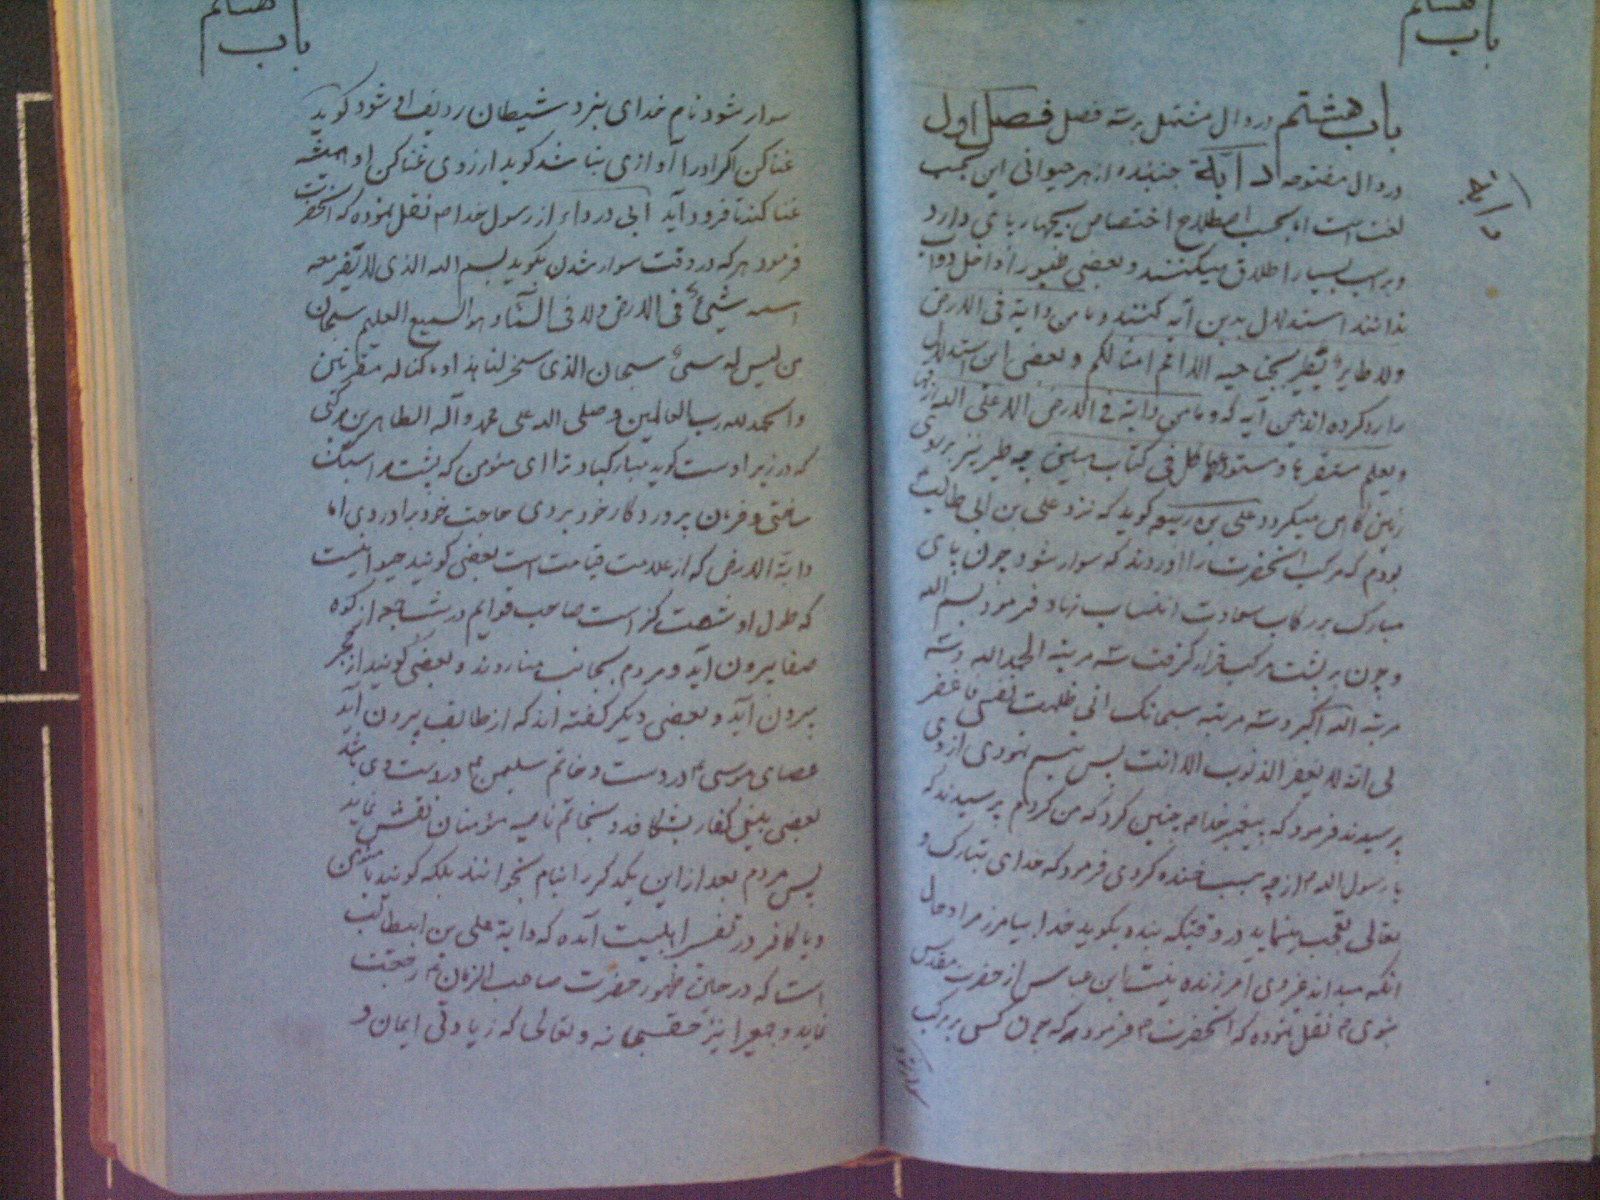 باب هشتم
باب هشتم در دال مشتمل بر سه فصل فصل اول
در دال مفتوحه دابّة جنبنده از هر حیوانی این بحسب
دابة
لغت است اما بحسب اصطلاح اختصاص بچهار پای دارد
و بر اسب بسیار اطلاق میکنند و بعضی طیور را داخل دواب
ندانند استدلال بدین آیه کنند و ما من دابة فی الارض
ولا طایر یطیر بجناحیه الا امم امثالکم و بعضی این استدلال
را رد کرده اند باین آیه که و ما من دابة فی الارض الا علی الله رزقها
و یعلم مستقرها و مستودعها کل فی کتاب مبین چه طیر نیز بر روی
زمین گاهی میگردد علی بن ربیعه گوید که نزد علی بن ابی طالب
بودم که مرکب آنحضرت را آوردند که سوار شود چون پای
مبارک بر رکاب سعادت انتساب نهاد فرمود بسم الله
و چون بر پشت مرکب قرار گرفت سه مرتبه الحمد الله و سه
مرتبه الله اکبر و سه مرتبه سبحانک انی ظلمت نفسی فاغفر
لی انه لا یغفر الذنوب الا انت پس تبسم نمودی از وی
پرسیدند فرمود که پیغمبر خدا ص چنین کرد که من کردم پرسیدند که
یا رسول الله ص از چه سبب خنده کردی فرمود که خدای تبارک و
تعالی تعجب مینماید در وقتیکه بنده بگوید خدا بیامرز مرا و حال
آنکه میداند غیر وی امرزنده نیست ابن عباس از حضرت مقدس
نبوی ص نقل نموده که آنحضرت ص فرمود هر که چون کسی بر مرکب
سوار شود
باب هشتم
سوار شود نام خدای نبرد شیطان ردیف او شود گوید
غنا کن اگر او را آوازی نباشد گوید ارزوی غنا کن او همیشه
غنا کند تا فرود آید ابی درداء از رسول خدا ص نقل نموده که آنحضرت
فرمود هر که در وقت سوار شدن بگوید بسم الله الذی لا یضر معه
اسمه شیئ فی الارض ولا فی السماء و هو السمیع العلیم سبحان
من لیس له سمی سبحان الذی سخر لنا هذا و ما کنا له مقرنین
و الحمد لله رب العالمین و صلی الله علی محمد و آله الطاهرین مرکبی
که در زیر اوست گوید مبارکباد ترا ای مؤمن که پشت مرا سبک
ساختی و فرمان پروردگار خود بردی حاجت خود براوردی اما
دابة الارض که از علامت قیامت است بعضی گویند حیوانیست
که طول او شصت گز است صاحب قوایم در شب جمعه از کوه
صفا بیرون آید و مردم بجانب منا روند و بعضی گویند از حجر
بیرون آید و بعضی دیگر گفته اند که از طایف بیرون آید
عصای موسی ع در دست و خاتم سلیمن ع در دست وی باشد
بعصی بینی کفار بشکافد و بخاتم ناصیه مؤمنان نقش نماید
پس مردم بعد از این یکدیگر را بنام نخوانند بلکه گویند یا مؤمن
و یا کافر در تفسیر اهلبیت آمده که دابة علی بن ابیطالب
است که در حین ظهور حضرت صاحب الزمان ع رجعت
نماید و جمعی را نیز حقسبحانه و تعالی که زیادتی ایمان و